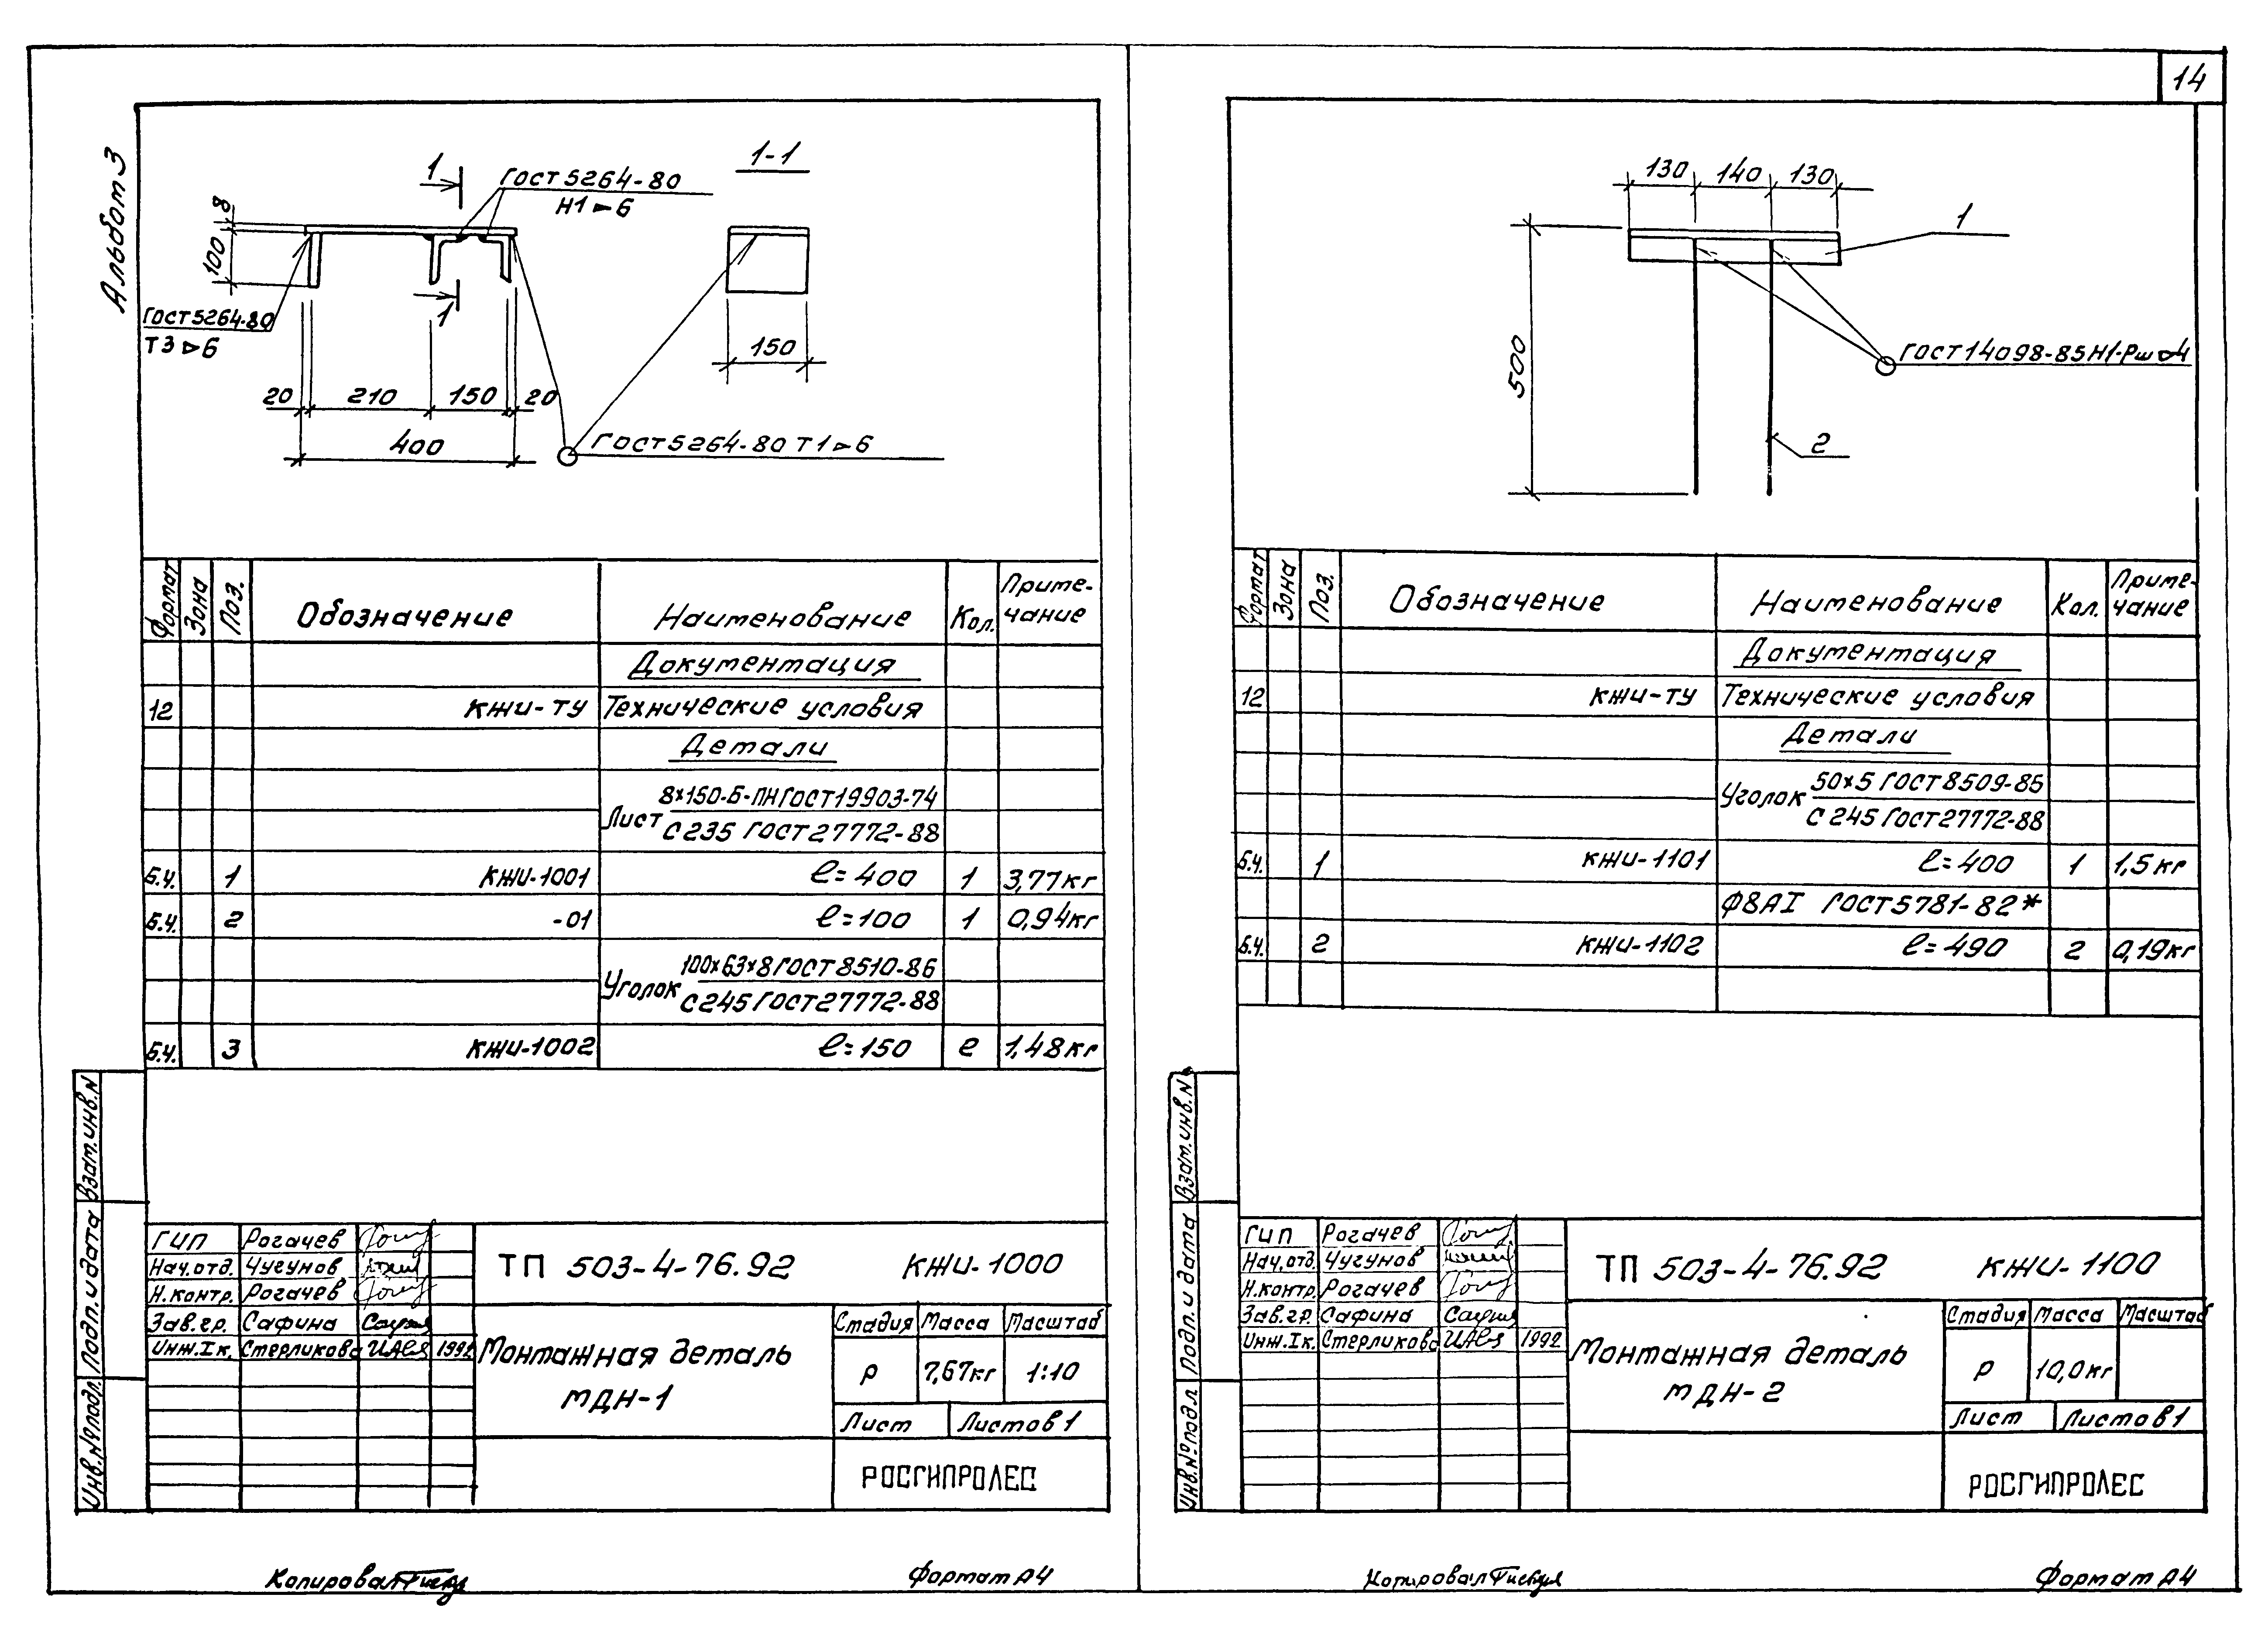 14
Альбом 3
1
ГОСТ 5264-80
Н1 ▷ 6
1-1
8
100
ГОСТ 5264-80
Т3 ▷ 6
1
150
20 210 150 20
400
ГОСТ 5264-80 Т1 ▷ 6
Формат Зона Поз. Обозначение Наименование Кол. Приме-
чание
Документация
12 КЖИ-ТУ Технические условия
Детали
8×150-Б-ПН ГОСТ 19903-74
Лист
С 235 ГОСТ 27772-88
Б.Ч. 1 КЖИ-1001 ℓ=400 1 3,77кг
Б.Ч. 2 -01 ℓ=100 1 0,94кг
100×63×8 ГОСТ 8510-86
Уголок
С 245 ГОСТ 27772-88
Б.Ч. 3 КЖИ-1002 ℓ=150 2 1,48кг
Взам.инв.N
Подп. и дата
Инв.№подл.
ГИП Рогачев
Нач.отд. Чугунов
Н.контр. Рогачев
Зав.гр. Сафина
Инж.Iк. Стерликова 1992
ТП 503-4-76.92 КЖИ-1000
Монтажная деталь
МДН-1
Стадия Масса Масштаб
Р 7,67кг 1:10
Лист Листов 1
РОСГИПРОЛЕС
Копировал
Формат А4
130 140 130
1
500
ГОСТ 14098-85 Н1-Рш
2
Формат Зона Поз. Обозначение Наименование Кол. Приме-
чание
Документация
12 КЖИ-ТУ Технические условия
Детали
50×5 ГОСТ 8509-85
Уголок
С 245 ГОСТ 27772-88
Б.Ч. 1 КЖИ-1101 ℓ=400 1 1,5кг
Ф8АI ГОСТ 5781-82*
Б.Ч. 2 КЖИ-1102 ℓ=490 2 0,19кг
Взам.инв.N
Подп. и дата
Инв.№подл.
ГИП Рогачев
Нач.отд. Чугунов
Н.контр. Рогачев
Зав.гр. Сафина
Инж.Iк. Стерликова 1992
ТП 503-4-76.92 КЖИ-1100
Монтажная деталь
МДН-2
Стадия Масса Масштаб
Р 10,0кг
Лист Листов 1
РОСГИПРОЛЕС
Копировал
Формат А4